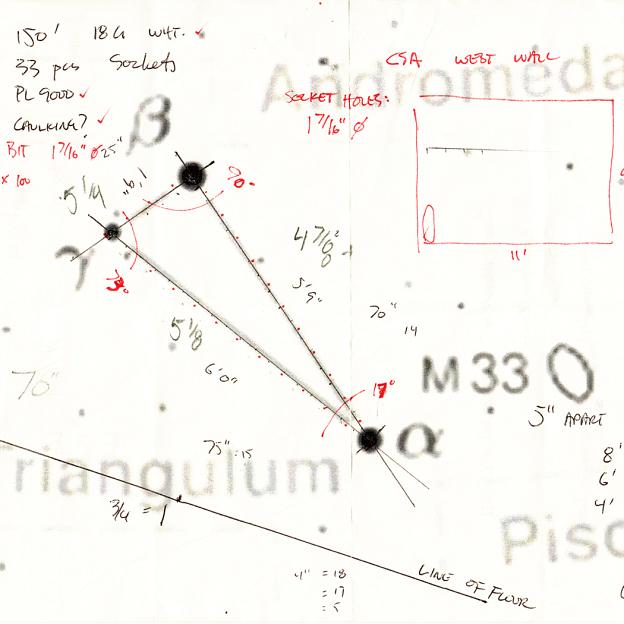 150' 18 G WHT.
33 pcs Sockets
PL 9000
CAULKING?
BIT 1 7/16" ø
x 100
CSA WEST WALL
Andromeda
SOCKET HOLES:
1 7/16" ø
11'
β
γ
α
5 1/4
1' 9"
4 7/8"
5' 9"
5 1/8
6' 0"
70"
14
17°
M33
5" APART
8'
6'
4'
76"
75" = 15
Triangulum
3/4 = 1'
Pisc
4" = 18
= 17
= 5
LINE OF FLOOR